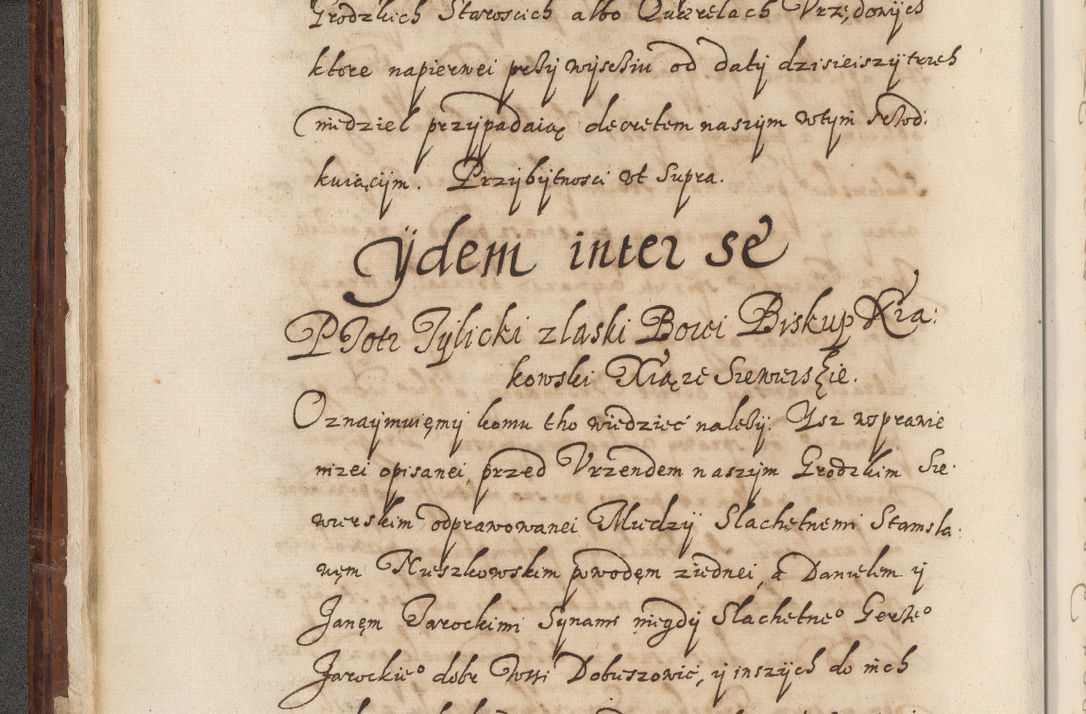 Grodzkich Staroscich albo Querelach Vrzędowych
ktore napierwei przy wysczciu od daty dzisieiszy trzech
niedziel przypadaią decretem naszym wtym Sąd
kuiącym. Przy bytnosci vt supra.
ÿdem inter se
Piotr Tylicki z laski Bozei Biskup Kra:
kowski Xiąze Siewierskie.
Oznaymuięmy komu tho wiedziec nalezy. Ysz wsprawie
nizei opisanei, przed Vrzendem naszym Grodzkim Sie:
wierskim odprawowanei Miedzy Slachetnemi Stanisla:
węm Mieszkowskim powodęm ziednei, a Danielem y
Janęm Jarockimi Synami niegdy Slachetneo Gerzeo
Jarockieo dobr Wssi Dobieszowic, y inszych do nich